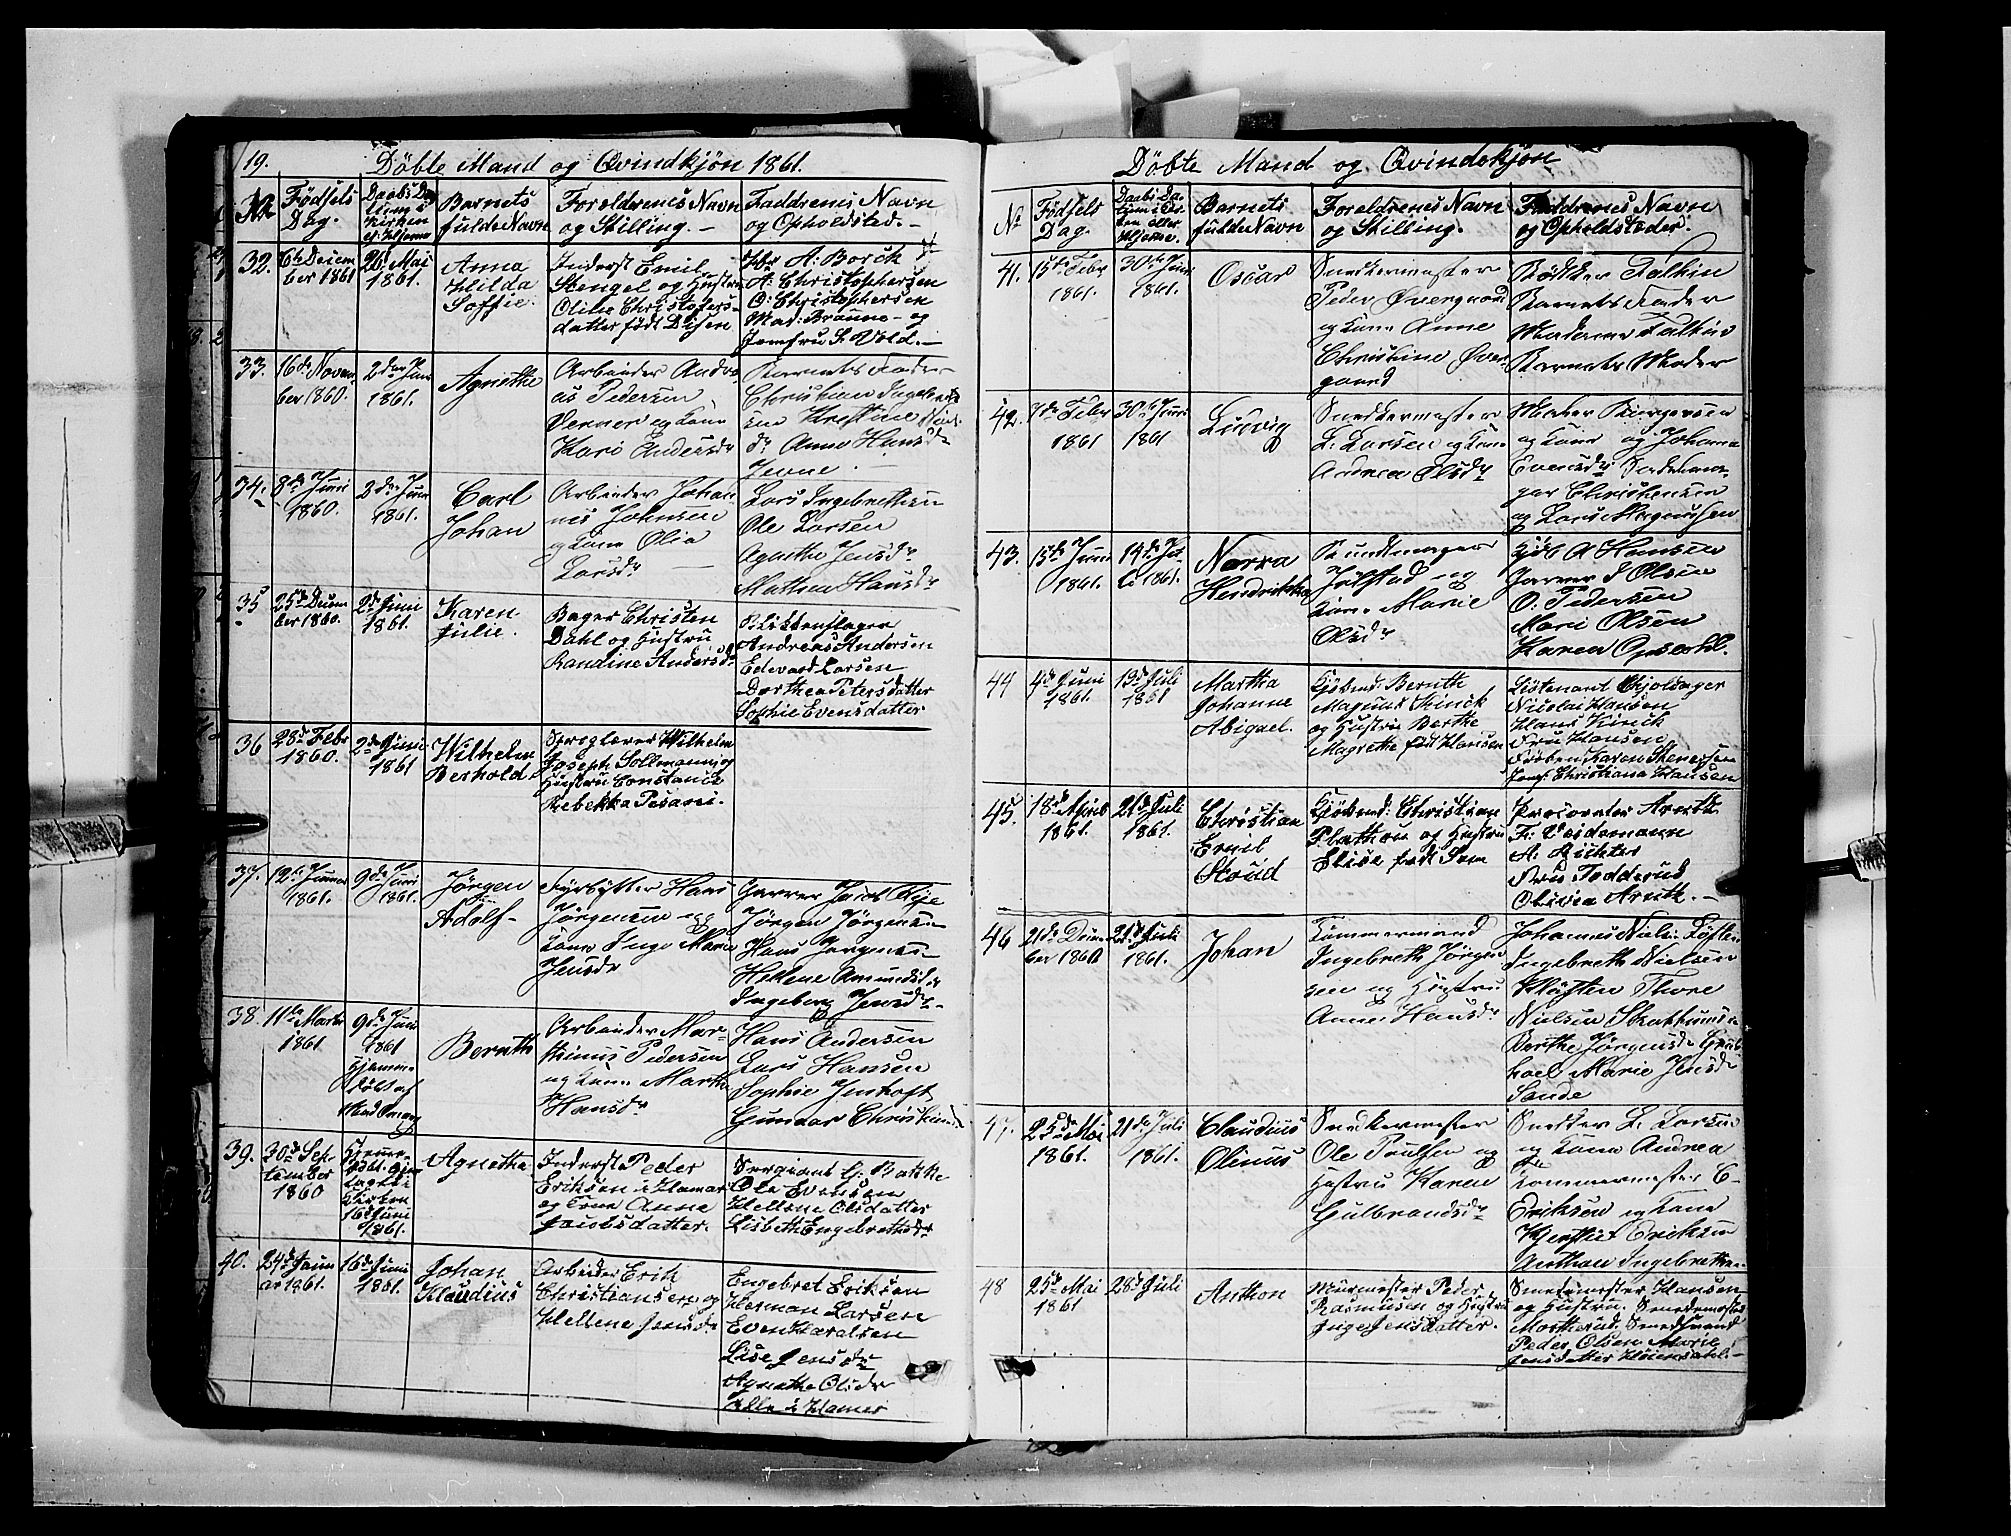 19.
Döbte Mand og Qvindkjön 1861.
No
Födsels
Dag.
Daabs Da
Kirken
el. Hjemme
Barnets
fulde Navn
Foreldrenes Navn
og Stilling. —
Faddrenes Navn
og Opholdsted. —
32.
6te Decem
ber 1861
26 Mai
1861.
Anna
Hilda
Soffie
Inderst Emil
Stengel og Hustru
Olise Christofers-
datter födt Disen
Hr A. Borch
A. Christophersen
O. Christophersen
Mad. Braune — og
Jomfru S. Vold. —
33.
16de Novem
ber 1860.
2den Juni
1861.
Agnethe
Arbeider Andre
as Pedersen
og Kone
Kari Andersdr
Barnets Fader
Christian Ingebret
sen
dr Anne Hansdr
Jevne.
34.
8de Juni
1860.
2den Juni
1861.
Carl
Johan
Arbeider Johan
nes Johnsen
og Kone Olia
Larsdr —
Lars Ingebrethsen
Ole Larsen
Agnethe Jensdr
Mathea Hansdr
35
25de Decem
ber 1860.
2de Juni
1861.
Karen
Julie.
Bager Christen
Dahl og Hustru
Randine Andersdr
Blikkenslager
Andreas Andersen
Edevard Larsen
Dorthea Petersdatter
Sophie Evensdatter
36
28de Febr
1860.
2de Juni
1861
Wilhelm
Berhold
Sproglærer Wilhelm
Joseph Sollmann og
Hustru Constance
Rebekka Pesani.
37.
12te Januar
1861.
9de Juni
1861.
Jörgen
Adolf —
Fyrböter Hans
Jörgensen — og
Kone Inge Marie
Jensdr
Garver Jacob Kije
Jörgen Jörgensen
Hans Jörgensen
Hellene Amundsdr
Ingeborg Jensdr
38
11te Marts
1861.
9de Juni
1861
Hjemme
döbt af
Bernth
Arbeider Mar-
thinus Pedersen
og Kone Marthe
Hansdr
Hans Andersen
Lars Hansen
Sophie Imhoft
Gunnar Christian
39.
30te Sep
tember
1860
Hjemme
döbt.
Kirken
16de Juni
1861.
Agnethe
Inderst Peder
Eriksen i Hamar
og Kone Anne
Jacobsdatter.
Sergiant G. Bakke
Ole Evensen
Hellene Olsdatter
Lisbeth Engebrethsdr
40.
24de Janu
ar 1861.
16de Juni
1861.
Johan
Klaudius
Arbeider Erik
Christiansen og
Hellene Jensdr
Engebret Eriksen
Herman Larsen
Even Haralsen
Lise Jensdr
Agnethe Olsdr
alle i Hamar
Döbte Mand og Qvindekjön
No
Födsels
Dag.
Daabs Da-
tum i Kir-
ken eller
Hjemme.
Barnets
fulde Navn
Foreldrenes Navn
og Stilling.
Faddrenes Navn
og Opholdsteder.
41.
15de Febr
1861.
30te Juni
1861.
Oscar
Snedkermester
Peder Övergaard
og Kone Anne
Christine Över-
gaard
Bödker Falkin
Barnets Fader
Madame Falkin
Barnets Moder
42.
7de Febr
1861
30te Juni
1861
Ludvig
Snedkermester
L. Larsen og Kone
Andrea Olsdr
Maler Birgersen
og Kone og Johanna
Evensdr
Christensen
og Lars Magnussen
43.
15de Juni
1861.
14de Ju
li 1861.
Narra
Hendrikka
Buntmager
Julstad — og
Kone Marie
Olsdr
Kjöb. A Hansen
Garver J Olsen
O. Pedersen
Mari Olsen
Karen Opsahl.
44
4de Juni
1861.
19de Juli
1861
Martha
Johanne
Abigael.
Kjöbmd: Bernth
Magnus Kinck
og Hustru Berthe
Magrethe född Hansen
Löitenant Hjoldager
Nicolai Hansen
Hans Kinck
Fru Hansen
Fröken Karen Stenersen
Jomf. Christiana Hansen
45.
18de April
1861.
21de Juli
1861.
Christian
Emil
Stoud
Kjöbmd: Christian
Plathou og Hustru
Elise født Sem
Procorator Arntz
F. Veidemann
A. Richter
Fru Todderud
Olivia Arntz. —
46
21de Decem
ber 1860
21de Juli
1861.
Johan
Tömmermand
Ingebreth Jörgen
sen og Hustru
Anne Hansdr
Johannes Nielsen Kløften
Ingebreth Nielsen
Kløften Thore
Nielsen
Berthe Jörgensdr
Marie Jensdr
Sande
47.
25de Mai
1861.
21de Juli
1861.
Claudius
Olinus
Snedkermester
Ole Poulsen og
Hustru Karen
Gulbrandsdr
Snedker L. Larsen
og Kone Andrea
Tömmermester C.
Eriksen og Kone
Kjerstie Eriksen
Anthon Ingebrethsen
48
25de Mai
1861
28de Juli
Anthon
Muurmester Peder
Rasmusen og Hustru
Inge Jensdatter.
Smedemester Hansen
og Hustru. Smedemester
Martherud. Smedsvend
Peder Olsen Marie
Jensdatter Hoiensahl. —